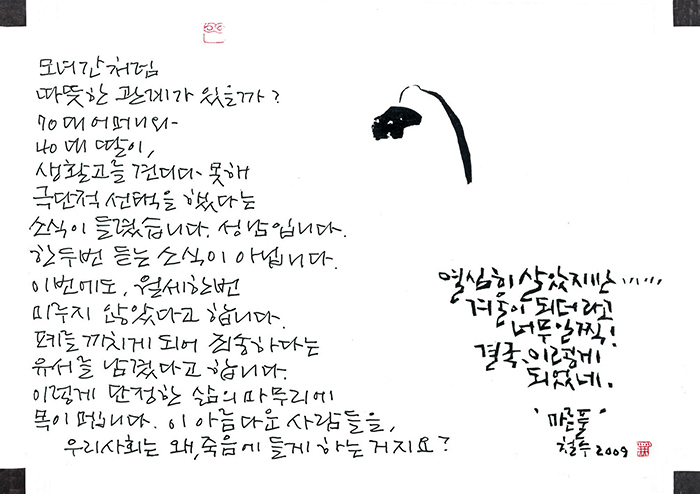 모녀간처럼
따뜻한 관계가 있을까?
70대 어머니와
40대 딸이,
생활고를 견디다 못해
극단적 선택을 했다는
소식이 들렸습니다. 성남입니다.
한두번 듣는 소식이 아닙니다.
이번에도, 월세한번
미루지 않았다고 합니다.
폐를 끼치게 되어 죄송하다는
유서를 남겼다고 합니다.
이렇게 단정한 삶의 마무리에
목이 멥니다. 이 아름다운 사람들을,
우리사회는 왜, 죽음에 들게 하는 거지요?
열심히 살았지만······
겨울이 되더라고
너무 일찍!
결국, 이렇게
되었네.
"마른풀"
철수 2009